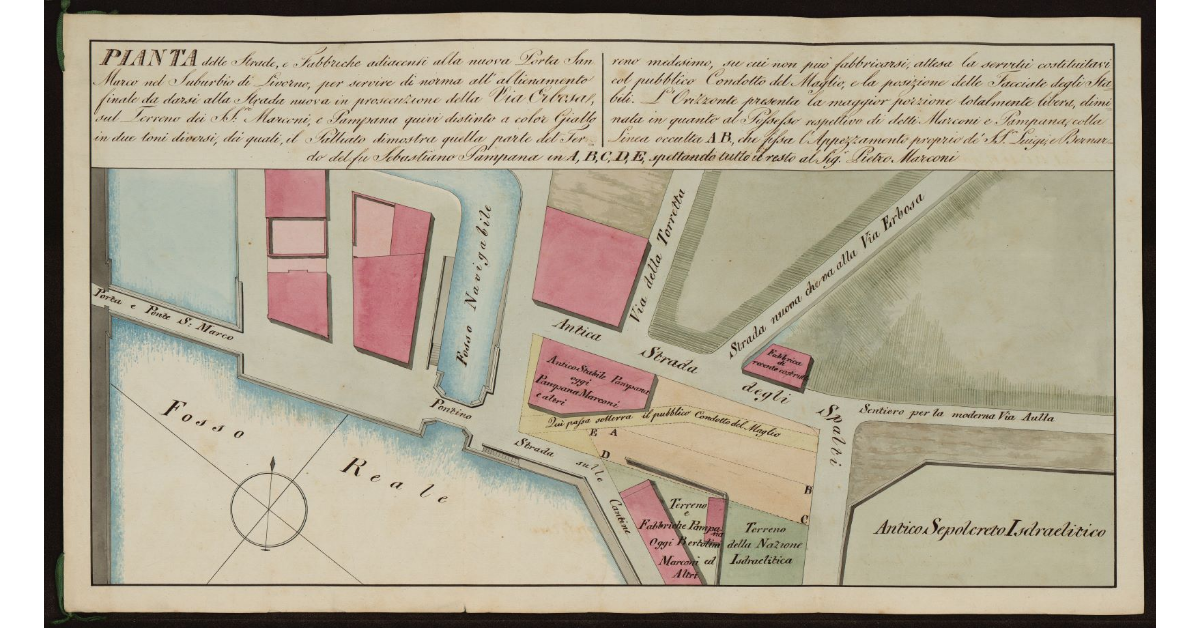 PIANTA delle Strade, e Fabbriche adiacenti alla nuova Porta San
Marco nel Suburbio di Livorno, per servire di norma all' allineamento
finale da darsi alla Strada nuova in prosecuzione della Via Erbosa,
sul Terreno dei SS.ri Marconi, e Pampana quivi distinto a color Giallo
in due toni diversi, dei quali, il Palliato dimostra quella parte del Ter-
reno medesimo, su cui non può fabbricarsi, attesa la servitù costituitavi
col pubblico Condotto del Maglio, e la posizione delle Facciate degli Sta-
bili. L'Orizzonte presenta la maggior porzione totalmente libera, dimi
nata in quanto al Possesso respettivo di detti Marconi e Pampana, colla
Linea occulta AB, che fissa l'Appezzamento proprio de' SS. Luigi, e Bernar-
do del fu Sebastiano Pampana in A, B, C, D, E, spettando tutto il resto al Sig. Pietro Marconi
Porta e Ponte S. Marco
Fosso Navigabile
Via della Torretta
Strada nuova che va alla Via Erbosa
Antica Strada degli Spalti
Fabbrica
Antico Stabile Pampana
oggi
Pampana Marconi
e altri
Qui passa sotterra il pubblico Condotto del Maglio
Sentiero per la moderna Via Aulla
Pontino
Fosso Reale
Strada sulle Cantine
E A
D
B
C
Terreno
e
Fabbriche Pampana
Oggi Bertolini
Marconi ed
Altri
Terreno
della Nazione
Isdraelitica
Antico Sepolcreto Isdraelitico